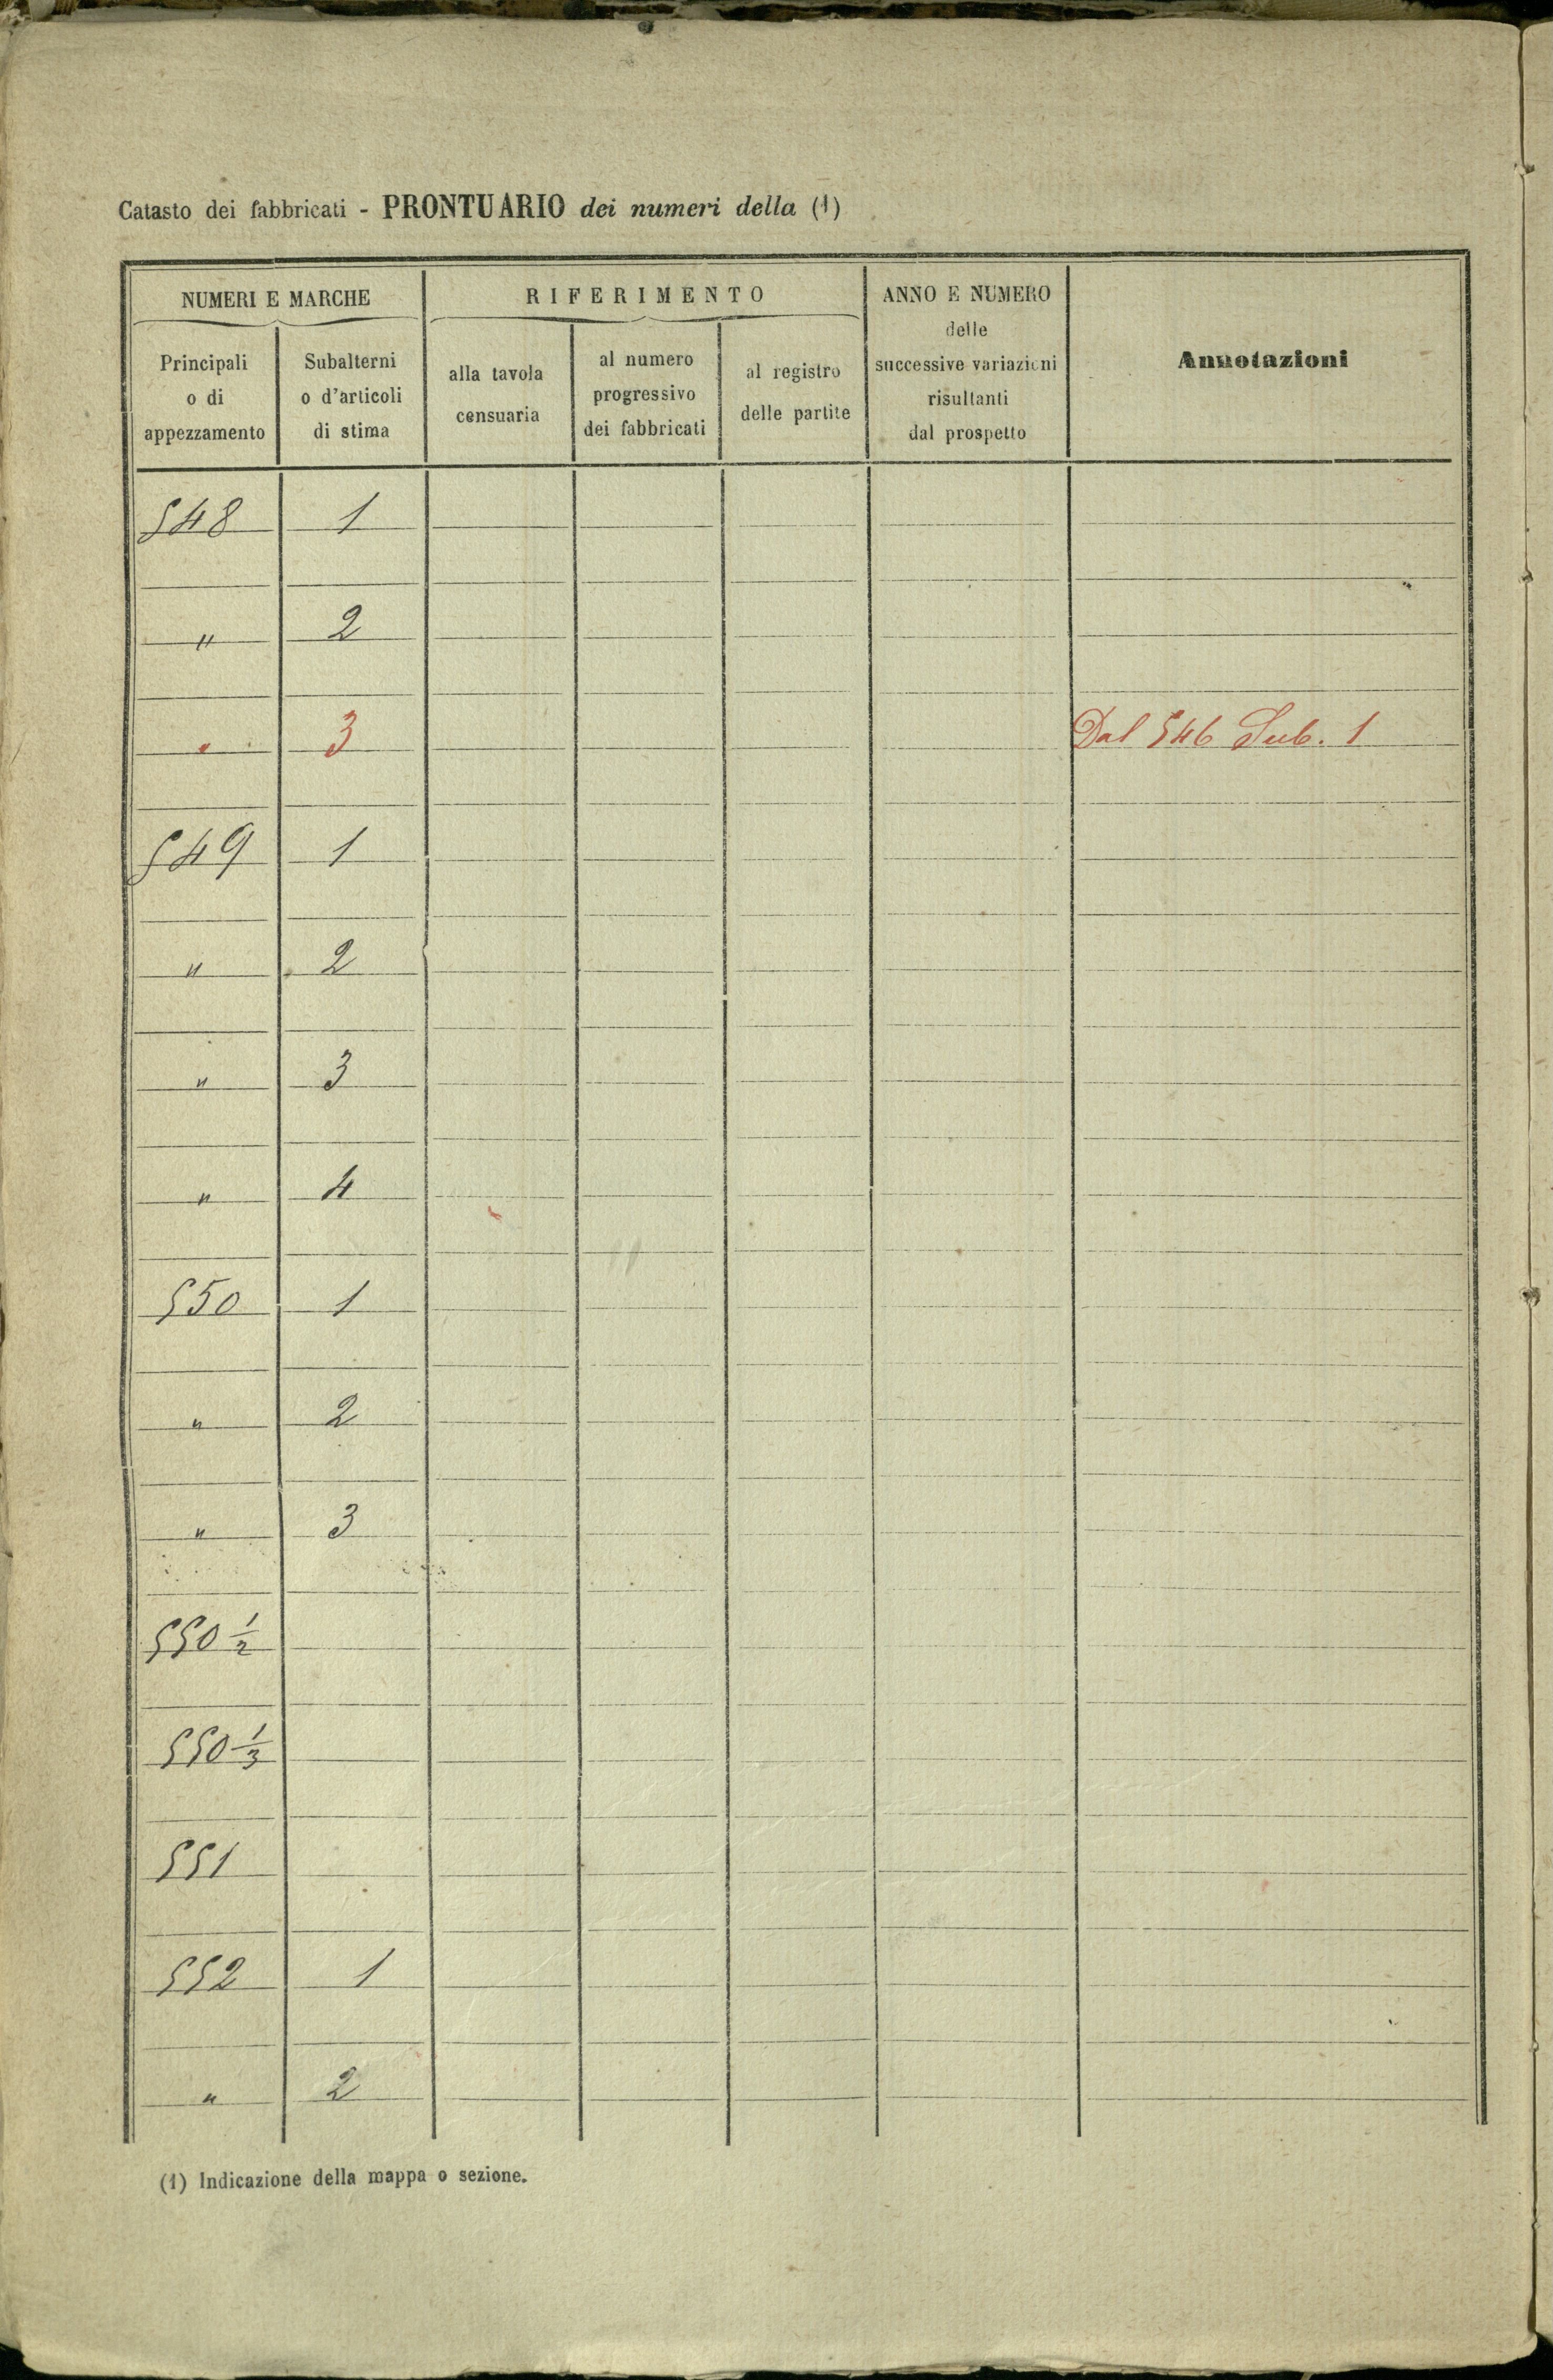 Catasto dei fabbricati - PRONTUARIO dei numeri della (1)
NUMERI E MARCHE
RIFERIMENTO
ANNO E NUMERO
delle
successive variazioni
risultanti
dal prospetto
Annotazioni
Principali
o di
appezzamento
Subalterni
o d'articoli
di stima
alla tavola
censuaria
al numero
progressivo
dei fabbricati
al registro
delle partite
548 1
" 2
" 3 Dal 546 Sub. 1
549 1
" 2
" 3
" 4
550 1
" 2
" 3
550 1/2
550 1/3
551
552 1
" 2
(1) Indicazione della mappa o sezione.